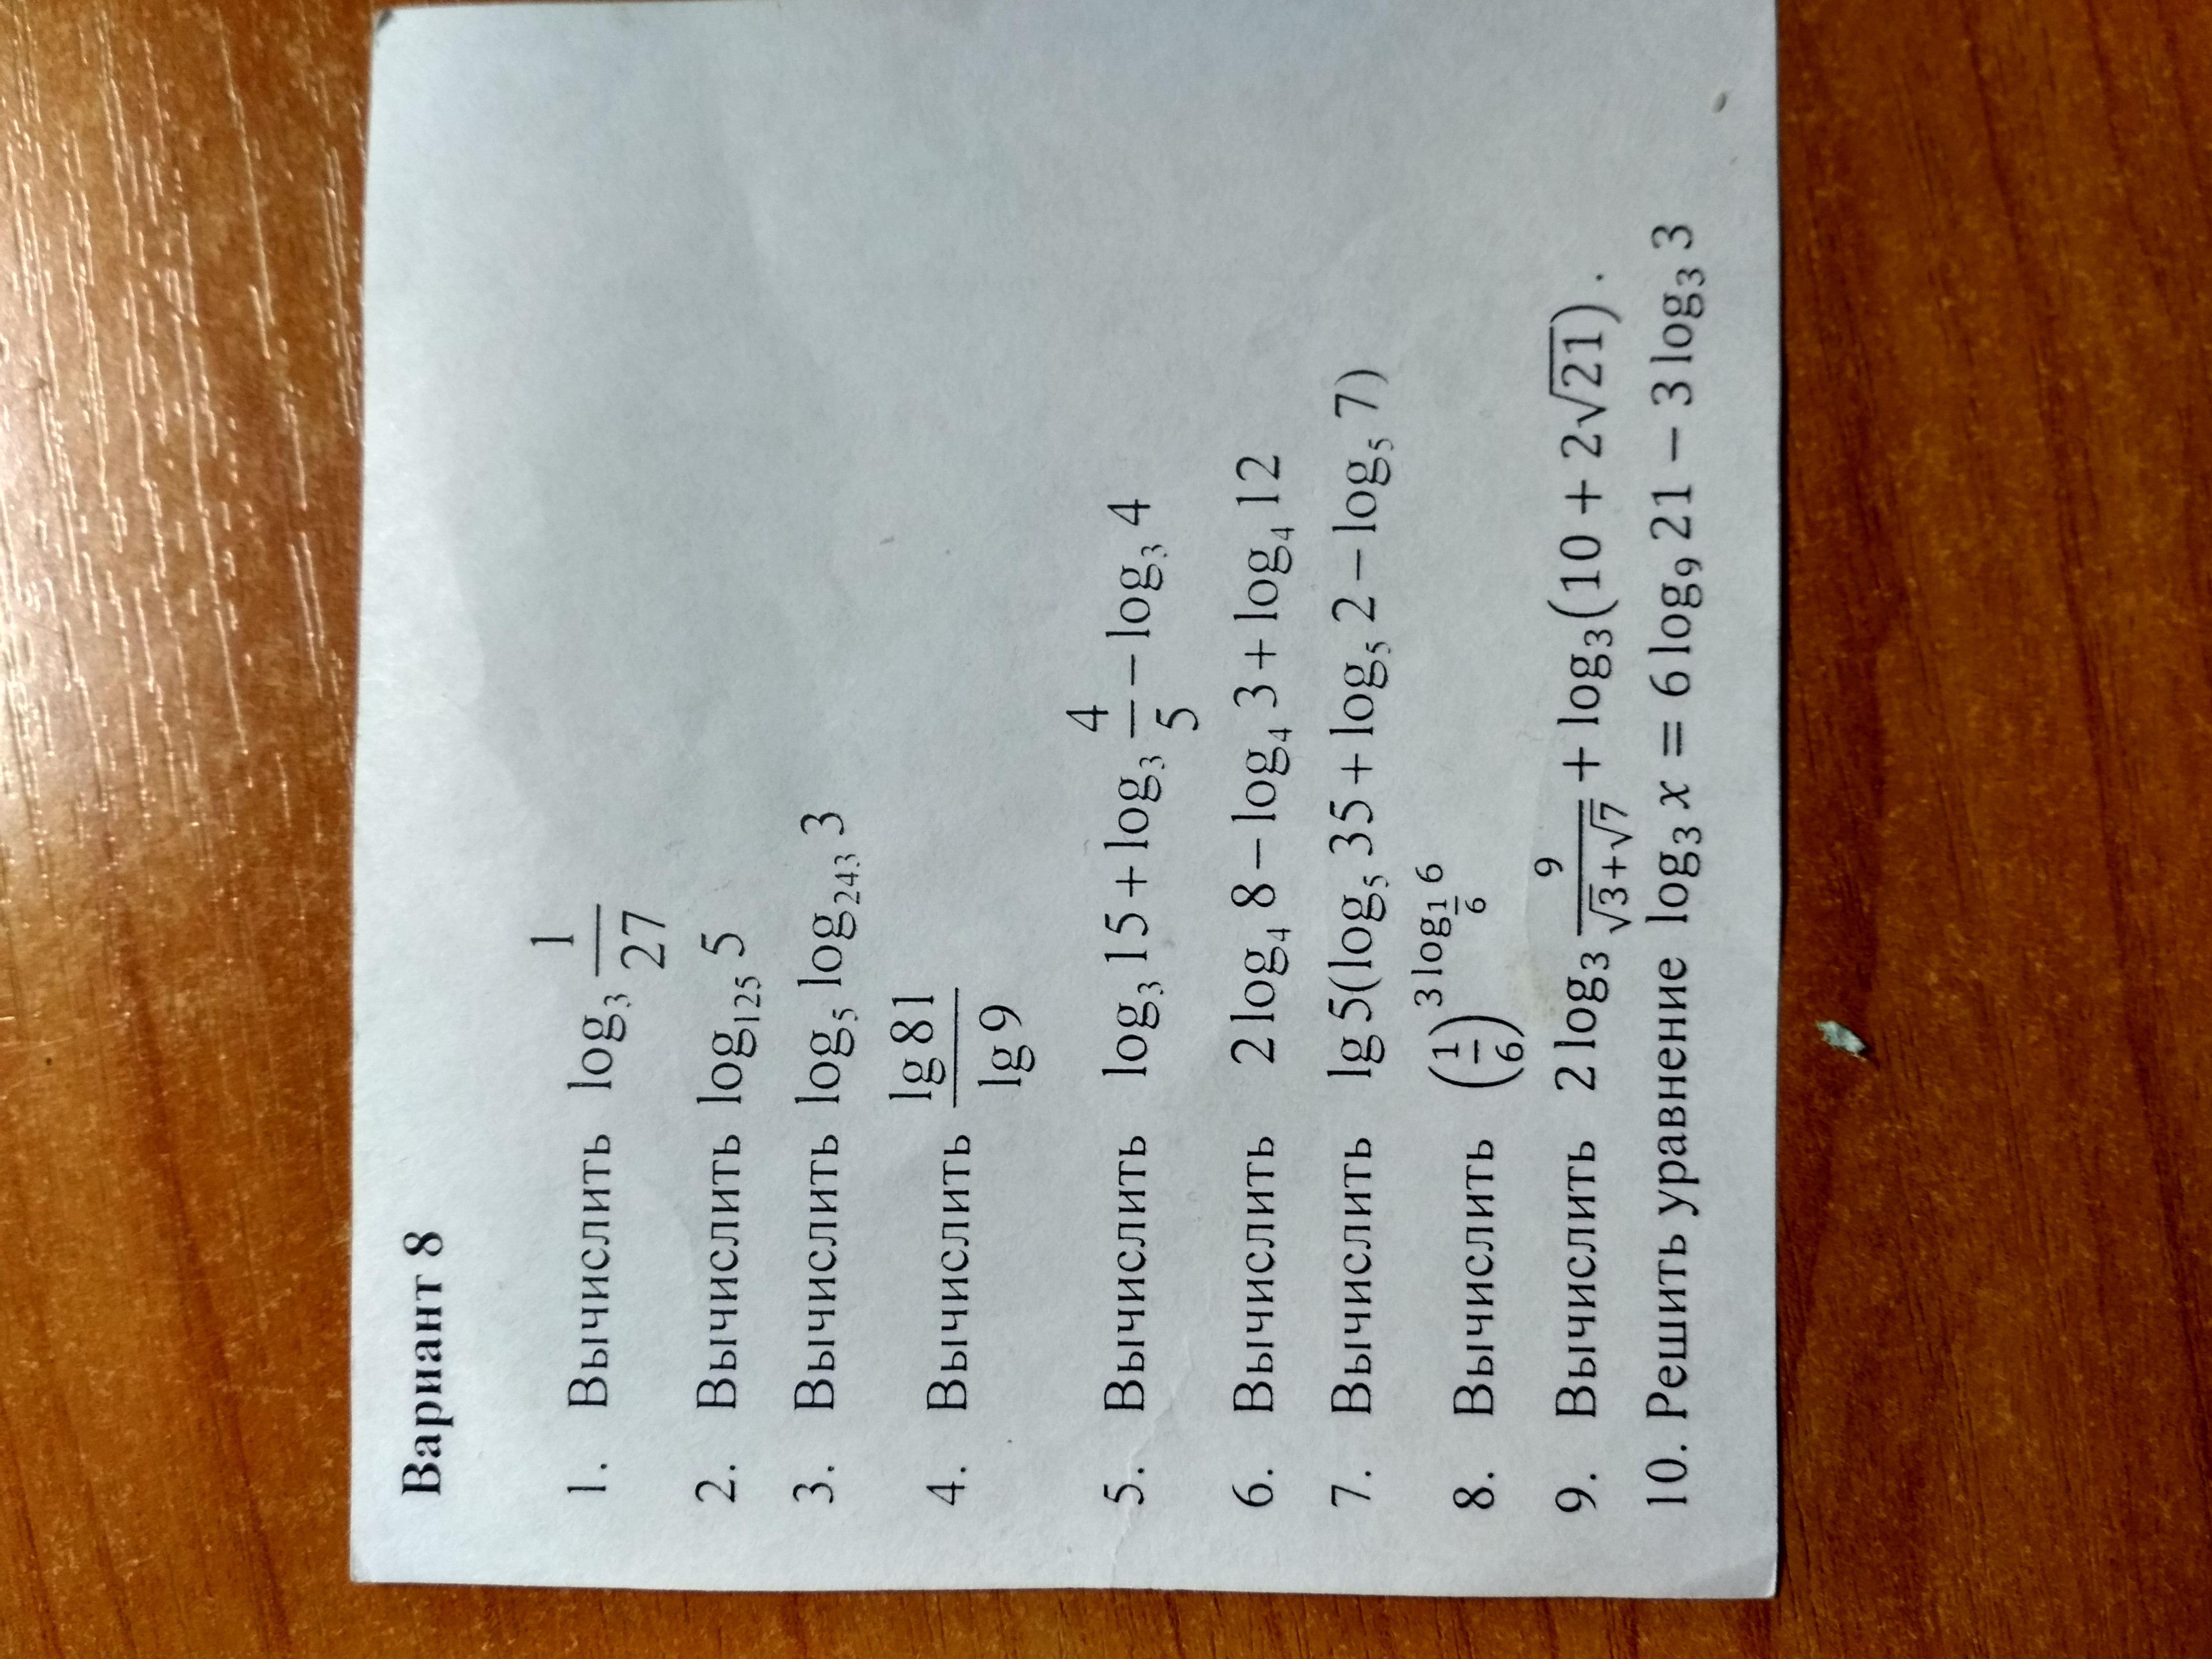 Вариант 8
1. Вычислить log₃ 1/27
2. Вычислить log₁₂₅ 5
3. Вычислить log₅ log₂₄₃ 3
4. Вычислить lg 81/lg 9
5. Вычислить log₃ 15 + log₃ 4/5 − log₃ 4
6. Вычислить 2 log₄ 8 − log₄ 3 + log₄ 12
7. Вычислить lg 5(log₅ 35 + log₅ 2 − log₅ 7)
8. Вычислить (1/6)^(3 log_(1/6) 6)
9. Вычислить 2 log₃ 9/(√3+√7) + log₃(10 + 2√21).
10. Решить уравнение log₃ x = 6 log₉ 21 − 3 log₃ 3